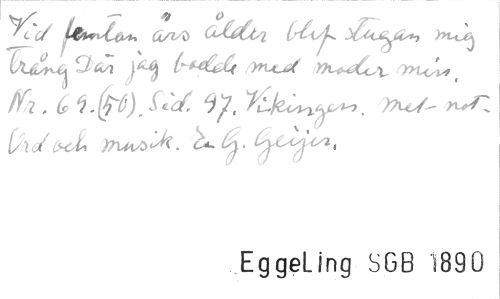 Vid femton års ålder blef stugan mig
trång Där jag bodde med moder min.
Nr. 69.(50). Sid. 97. Vikingen. Met-not-
Ord och musik. E. G. Geijer.
EggeLing SGB 1890